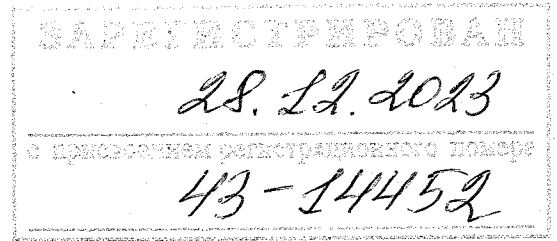 ЗАРЕГИСТРИРОВАН
28.12.2023
с присвоением регистрационного номера
43-14452